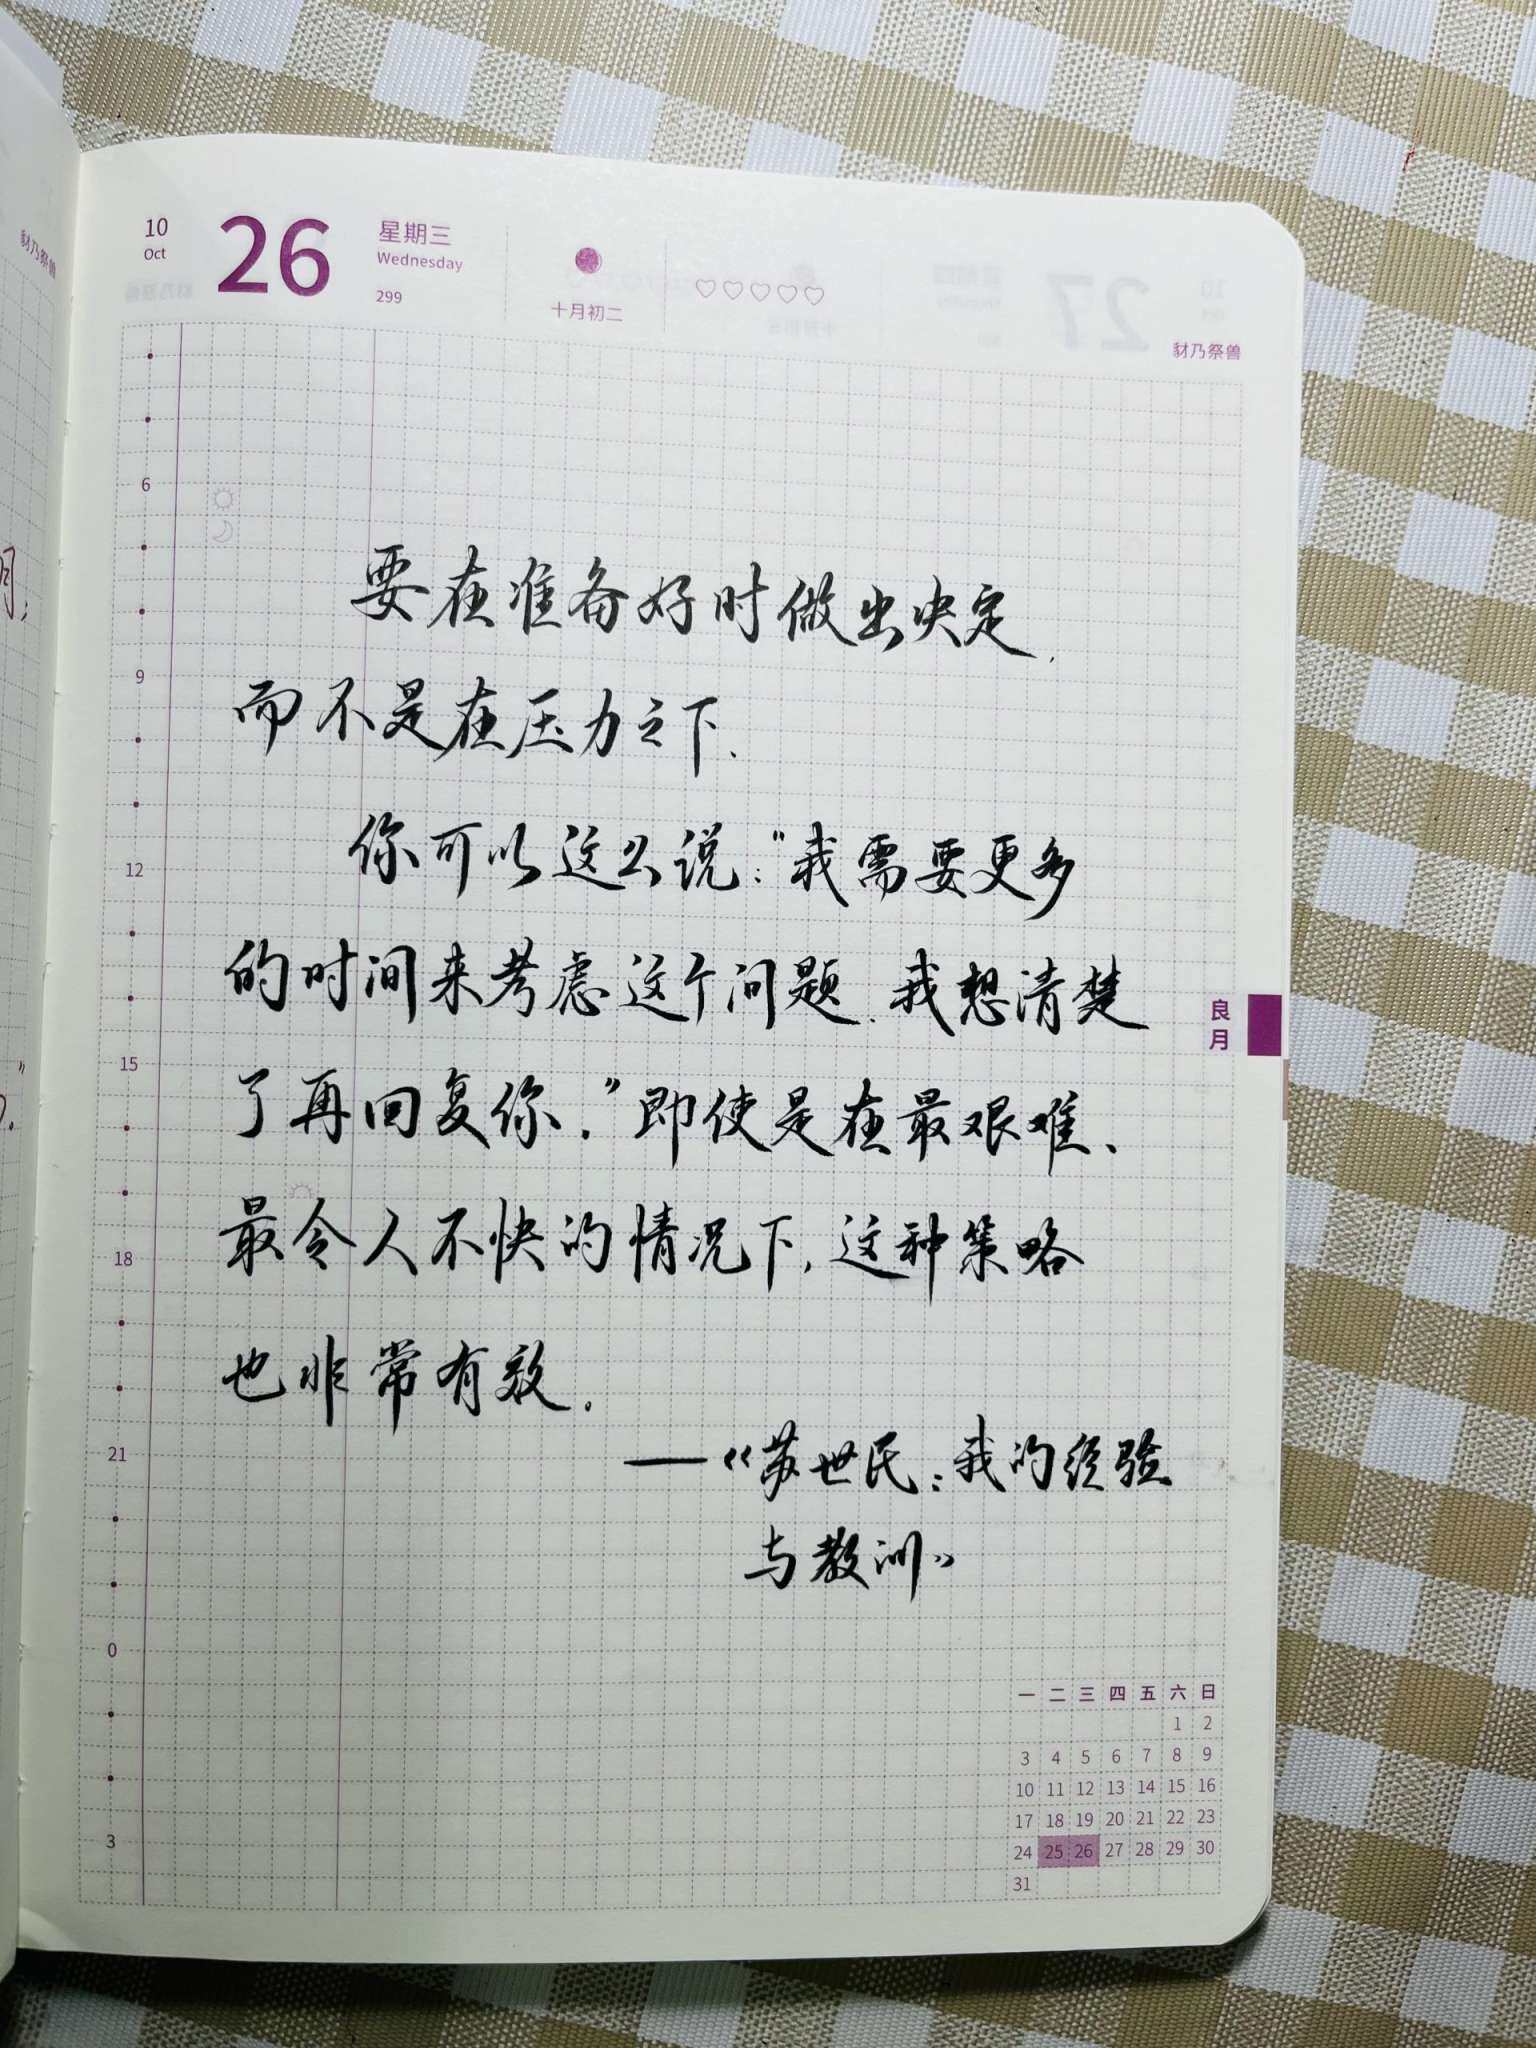 10
Oct
26
星期三
Wednesday
299
十月初二
豺乃祭兽
豺乃祭兽
6
要在准备好时做出决定,
9
而不是在压力之下.
12
你可以这么说:“我需要更多
的时间来考虑这个问题.我想清楚
良月
15
了再回复你.”即使是在最艰难、
18
最令人不快的情况下,这种策略
也非常有效.
21
——《苏世民:我的经验
与教训》
0
3
一 二 三 四 五 六 日
1 2
3 4 5 6 7 8 9
10 11 12 13 14 15 16
17 18 19 20 21 22 23
24 25 26 27 28 29 30
31